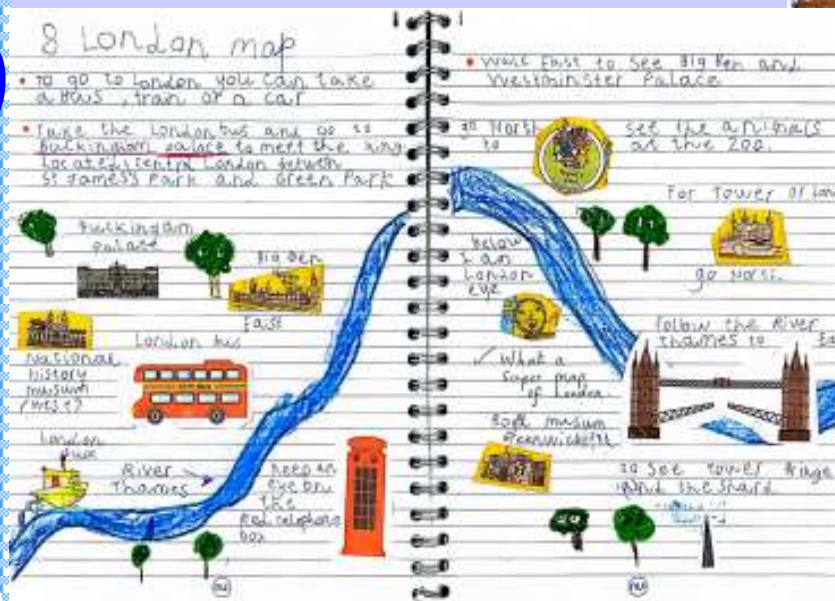 8 London map
• To go to London you can take
a bus, train or a car
• Take the London bus and go to
Buckingham palace to meet the king
located central London between
St James's Park and Green Park
Buckingam
palace
Big Ben
East
National
history
musum
(West)
London bus
London
River
Thames
keep an
eye on
the
Red telephone
box
• Walk East to see Big Ben and
Westminster Palace
go North
to
see the animals
at the zoo.
For Tower of Lon
go North
below
London
eye
Follow the River
Thames to Ea
✓ What a
super map
of London.
musum
to see tower Bridge
and the shard